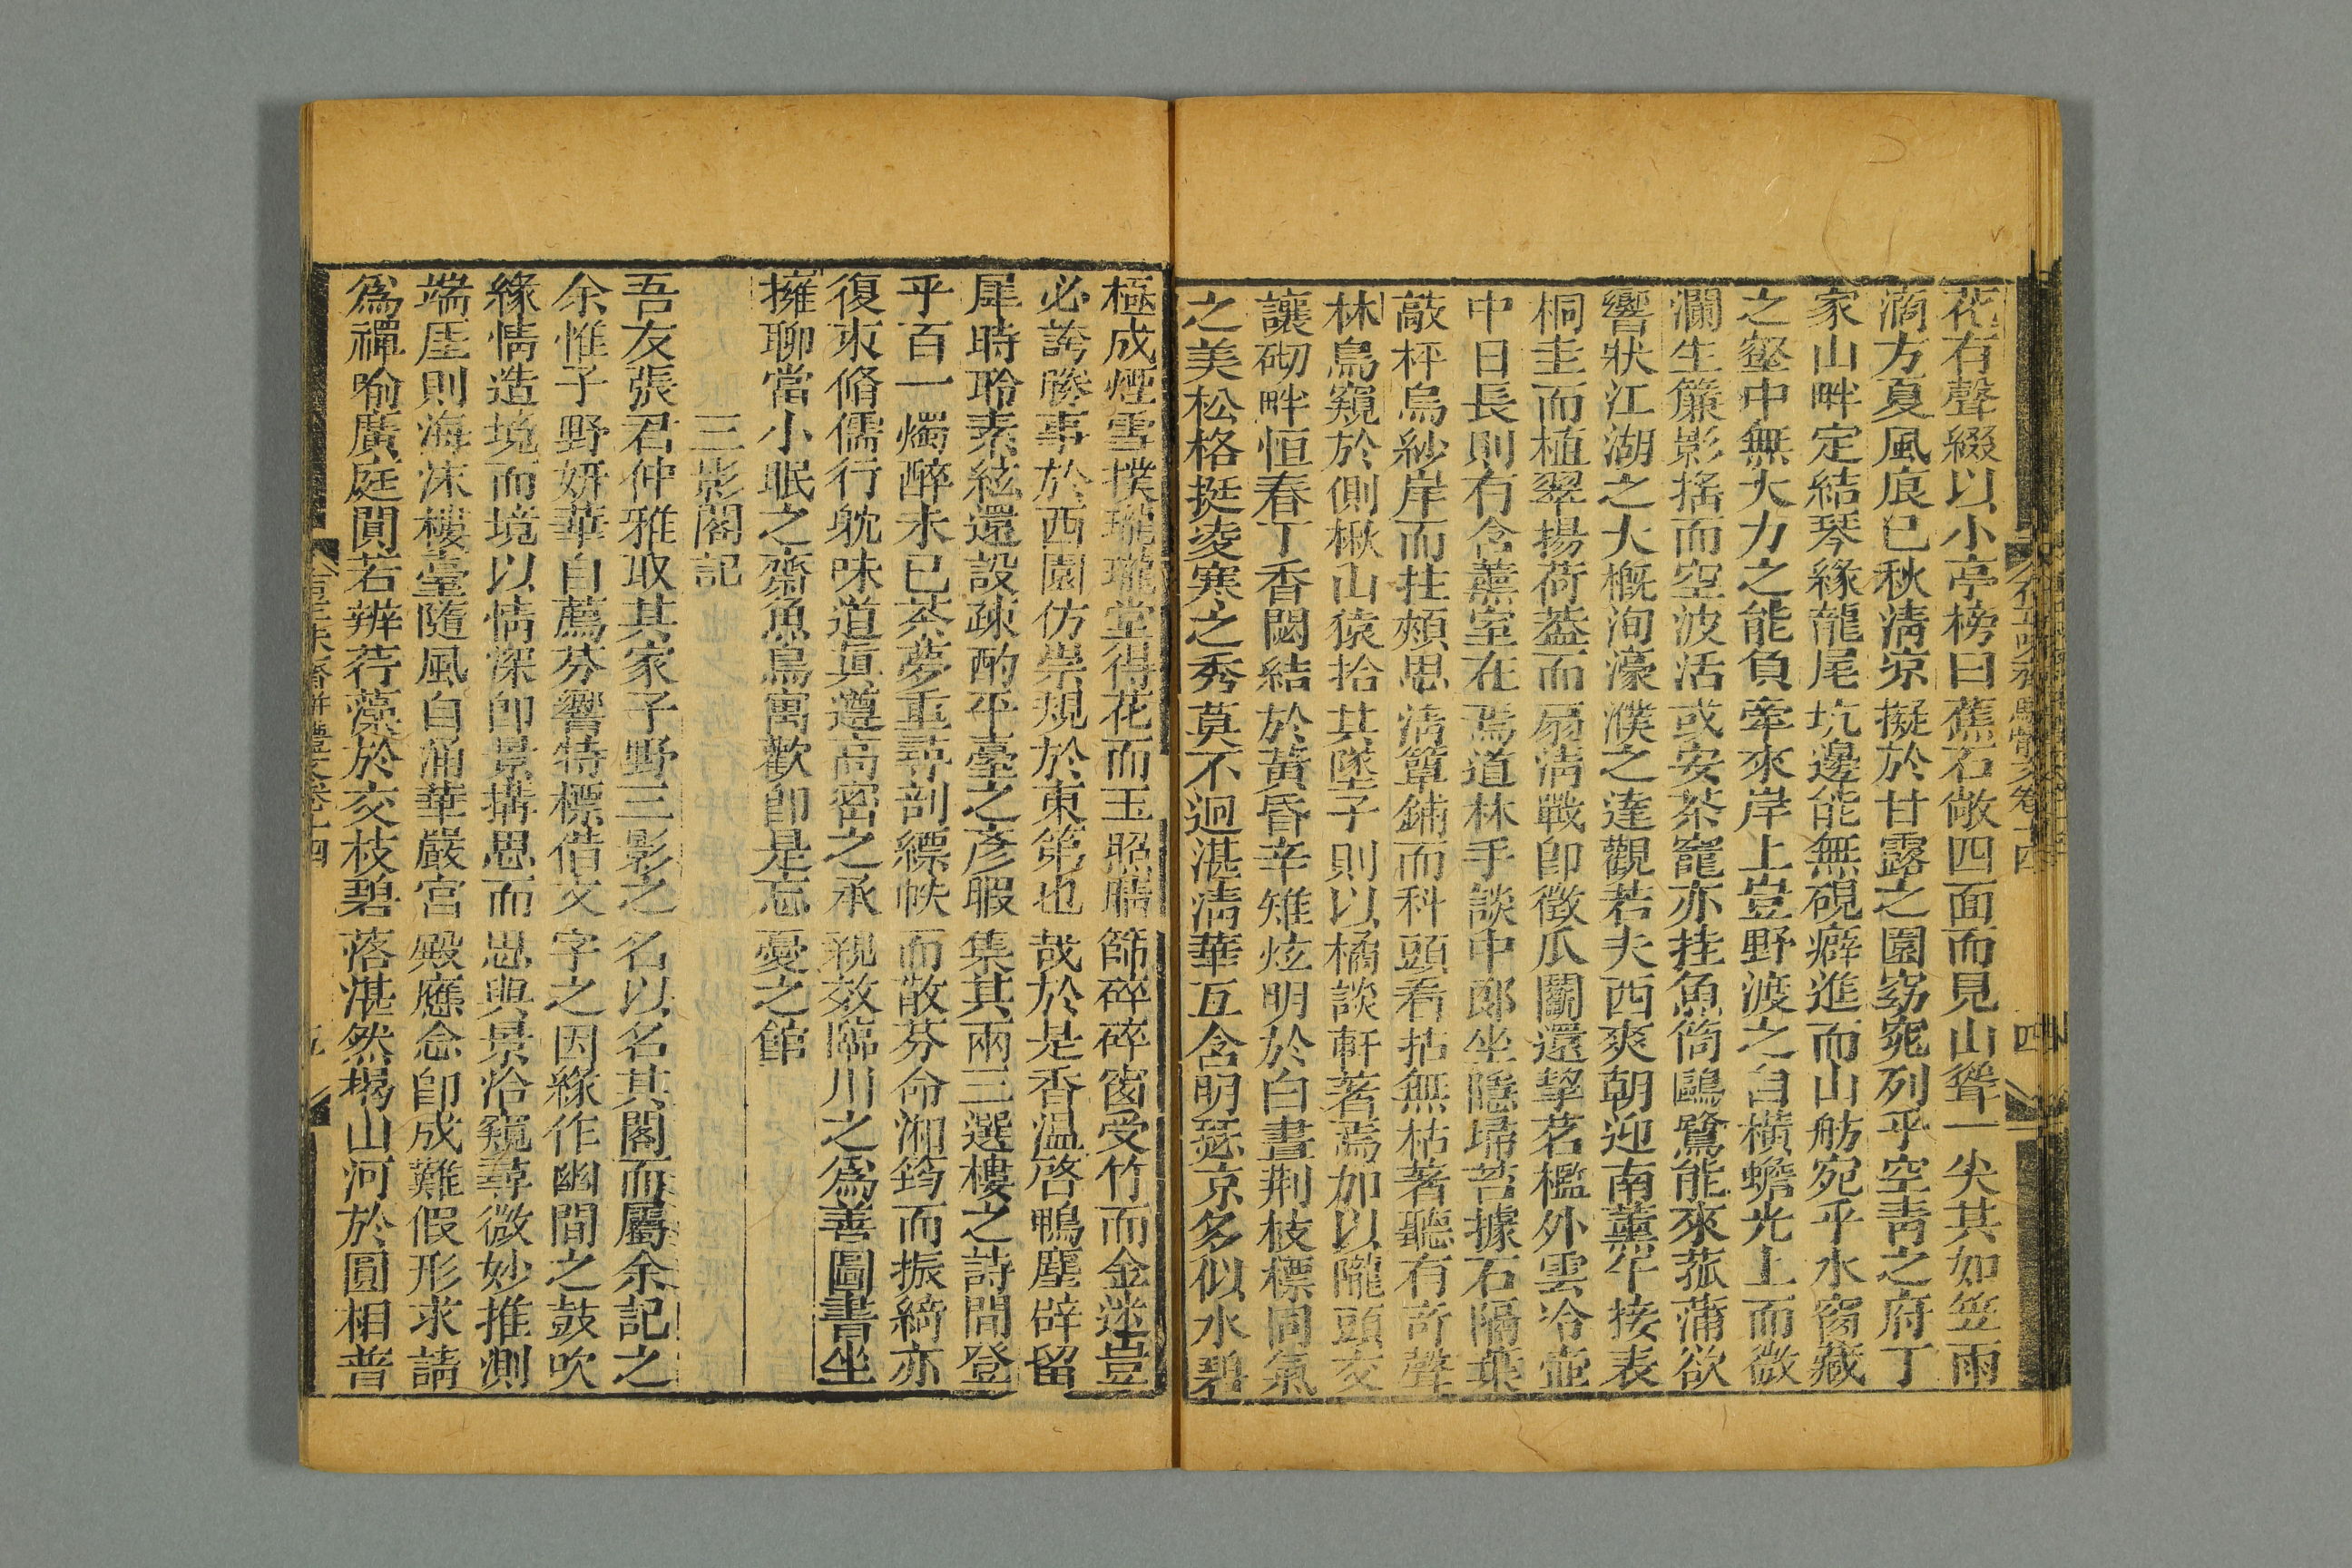 花有聲綴以小亭榜曰蕉石敞四面而見山聳一尖其如笠雨
滴方夏風㾗已秋淸凉擬於甘露之園窈窕列乎空靑之府丁
家山畔定結琴緣龍尾坑邊能無硯癖進而山舫宛乎水窗藏
之壑中無大力之能負牽來岸上豈野渡之自橫蟾光上而微
瀾生簾影搖而空波活或安茶竈亦挂魚筒鷗鷺能來菰蒲欲
響狀江湖之大槪洵濠濮之達觀若夫西爽朝迎南薰午接表
桐圭而植翠揚荷蓋而扇淸戰卽徵瓜鬭還挈茗檻外雲冷壺
中日長則有含薰室在焉道林手談中郎坐隱埽苔據石隔葉
敲枰烏紗岸而拄頰思淸簟鋪而科頭看拈無枯著聽有奇聲
林鳥窺於側楸山猿拾其墜子則以橘談軒著焉加以隴頭交
讓砌畔恒春丁香閟結於黃昏辛雉炫明於白晝荆枝標同氣
之美松格挺凌寒之秀莫不迥湛淸華互含明瑟京多似水碧
極成煙雪撲瓏瓏堂得花而玉照牆篩碎碎窗受竹而金迷豈
必誇勝事於西園仿崇規於東第也哉於是香温啓鴨塵辟留
犀時聆素絃還設疎酌平臺之彥暇集其兩三選樓之詩閒登
乎百一燭醉未已茶夢重尋剖縹帙而散芬命湘筠而振綺亦
復束脩儒行躭味道眞遵高密之承親效臨川之爲善圖書坐
擁聊當小眠之齋魚鳥寓歡卽是忘憂之館
三影閣記
吾友張君仲雅取其家子野三影之名以名其閣而屬余記之
余惟子野妍華自薦芬響特標借文字之因緣作幽閒之鼓吹
緣情造境而境以情深卽景搆思而思與景洽窺尋微妙推測
端厓則海沫樓臺隨風自涌華嚴宮殿應念卽成難假形求請
爲禪喻廣庭閴若辨荇藻於交枝碧落湛然揭山河於圓相普